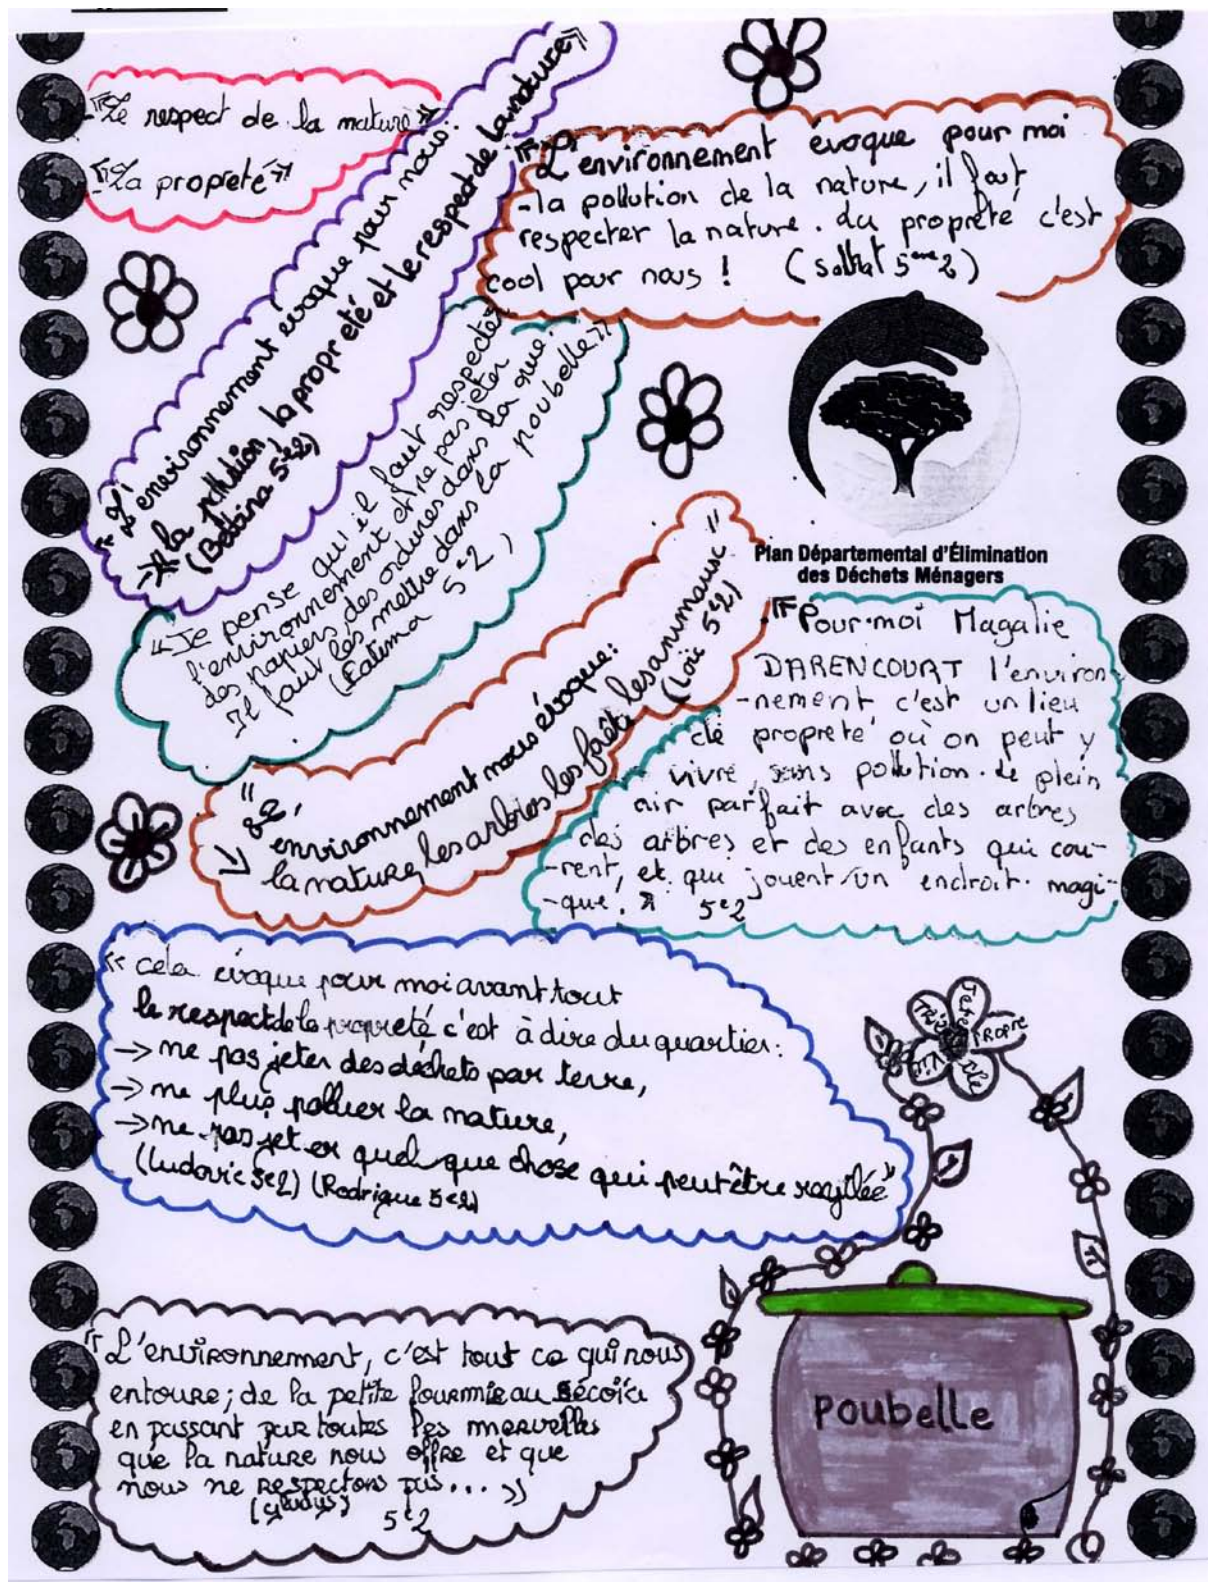 «Le respect de la nature»
«La propreté»
« L'environnement évoque pour nous:
→ la pollution, la propreté et le respect de la nature»
(Bettina 5e2)
«L'environnement évoque pour moi
-la pollution de la nature, il faut
respecter la nature. du propreté c'est
cool pour nous ! ( 5eme2)
« Je pense qu'il faut respecter
l'environnement et ne pas jeter
des papiers, des ordures dans la rue.
Il faut les mettre dans la poubelle»
(Fatima 5e2)
Plan Départemental d'Élimination
des Déchets Ménagers
" L'
environnement nous évoque:
→ la nature, les arbres, les forêts, les animaux "
(Loïc 5e2)
«Pour moi Magalie
DARENCOURT l'environ
-nement c'est un lieu
de propreté où on peut y
vivre, sans pollution. Le plein
air parfait avec des arbres
des arbres et des enfants qui cou-
-rent, et qui jouent un endroit magi-
-que. » 5e2
« cela évoque pour moi avant tout
le respect de la propreté c'est à dire du quartier:
→ ne pas jeter des déchets par terre,
→ ne plus polluer la nature,
→ ne pas jeter quelque chose qui peut être recyclée"
(Ludovic 5e2) (Rodrigue 5e2)
Trie Jete PROPRE
« L'environnement, c'est tout ce qui nous
entoure; de la petite fourmie au sécoïa
en passant par toutes les merveilles
que la nature nous offre et que
nous ne respectons pas... »
(Gladys) 5e2
Poubelle